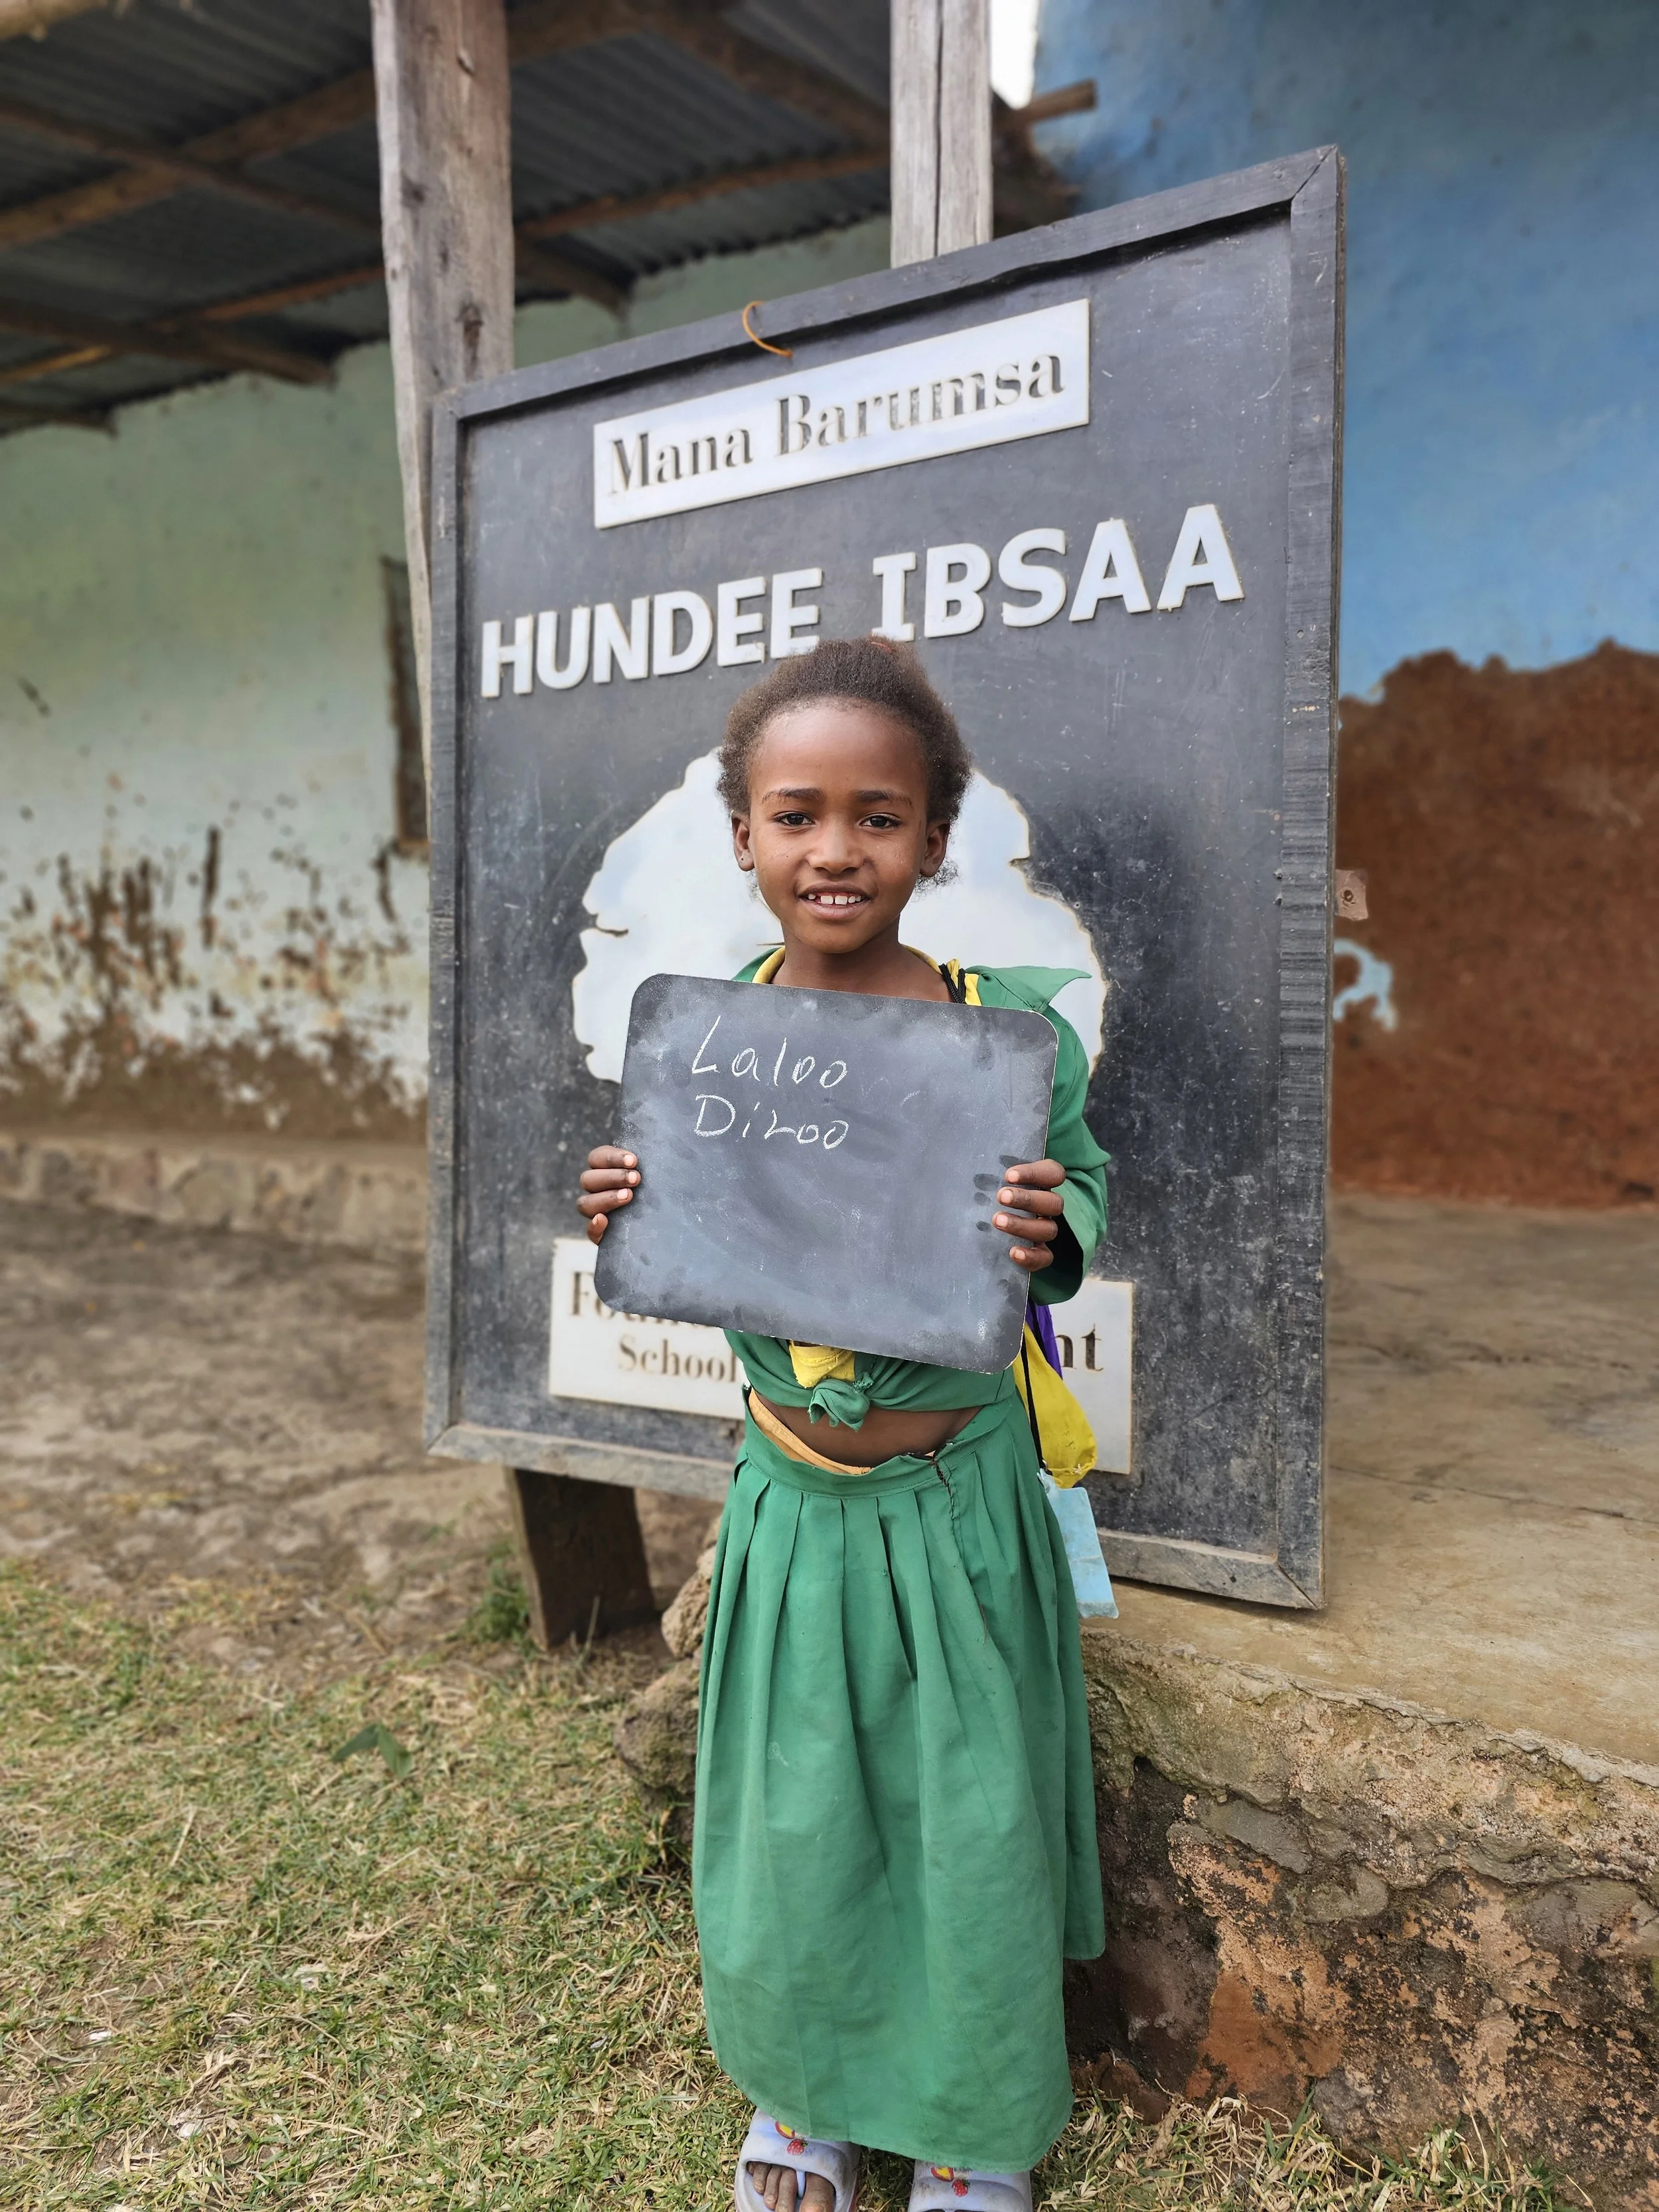 Mana Barumsa
HUNDEE IBSAA
Laloo
Diroo
School